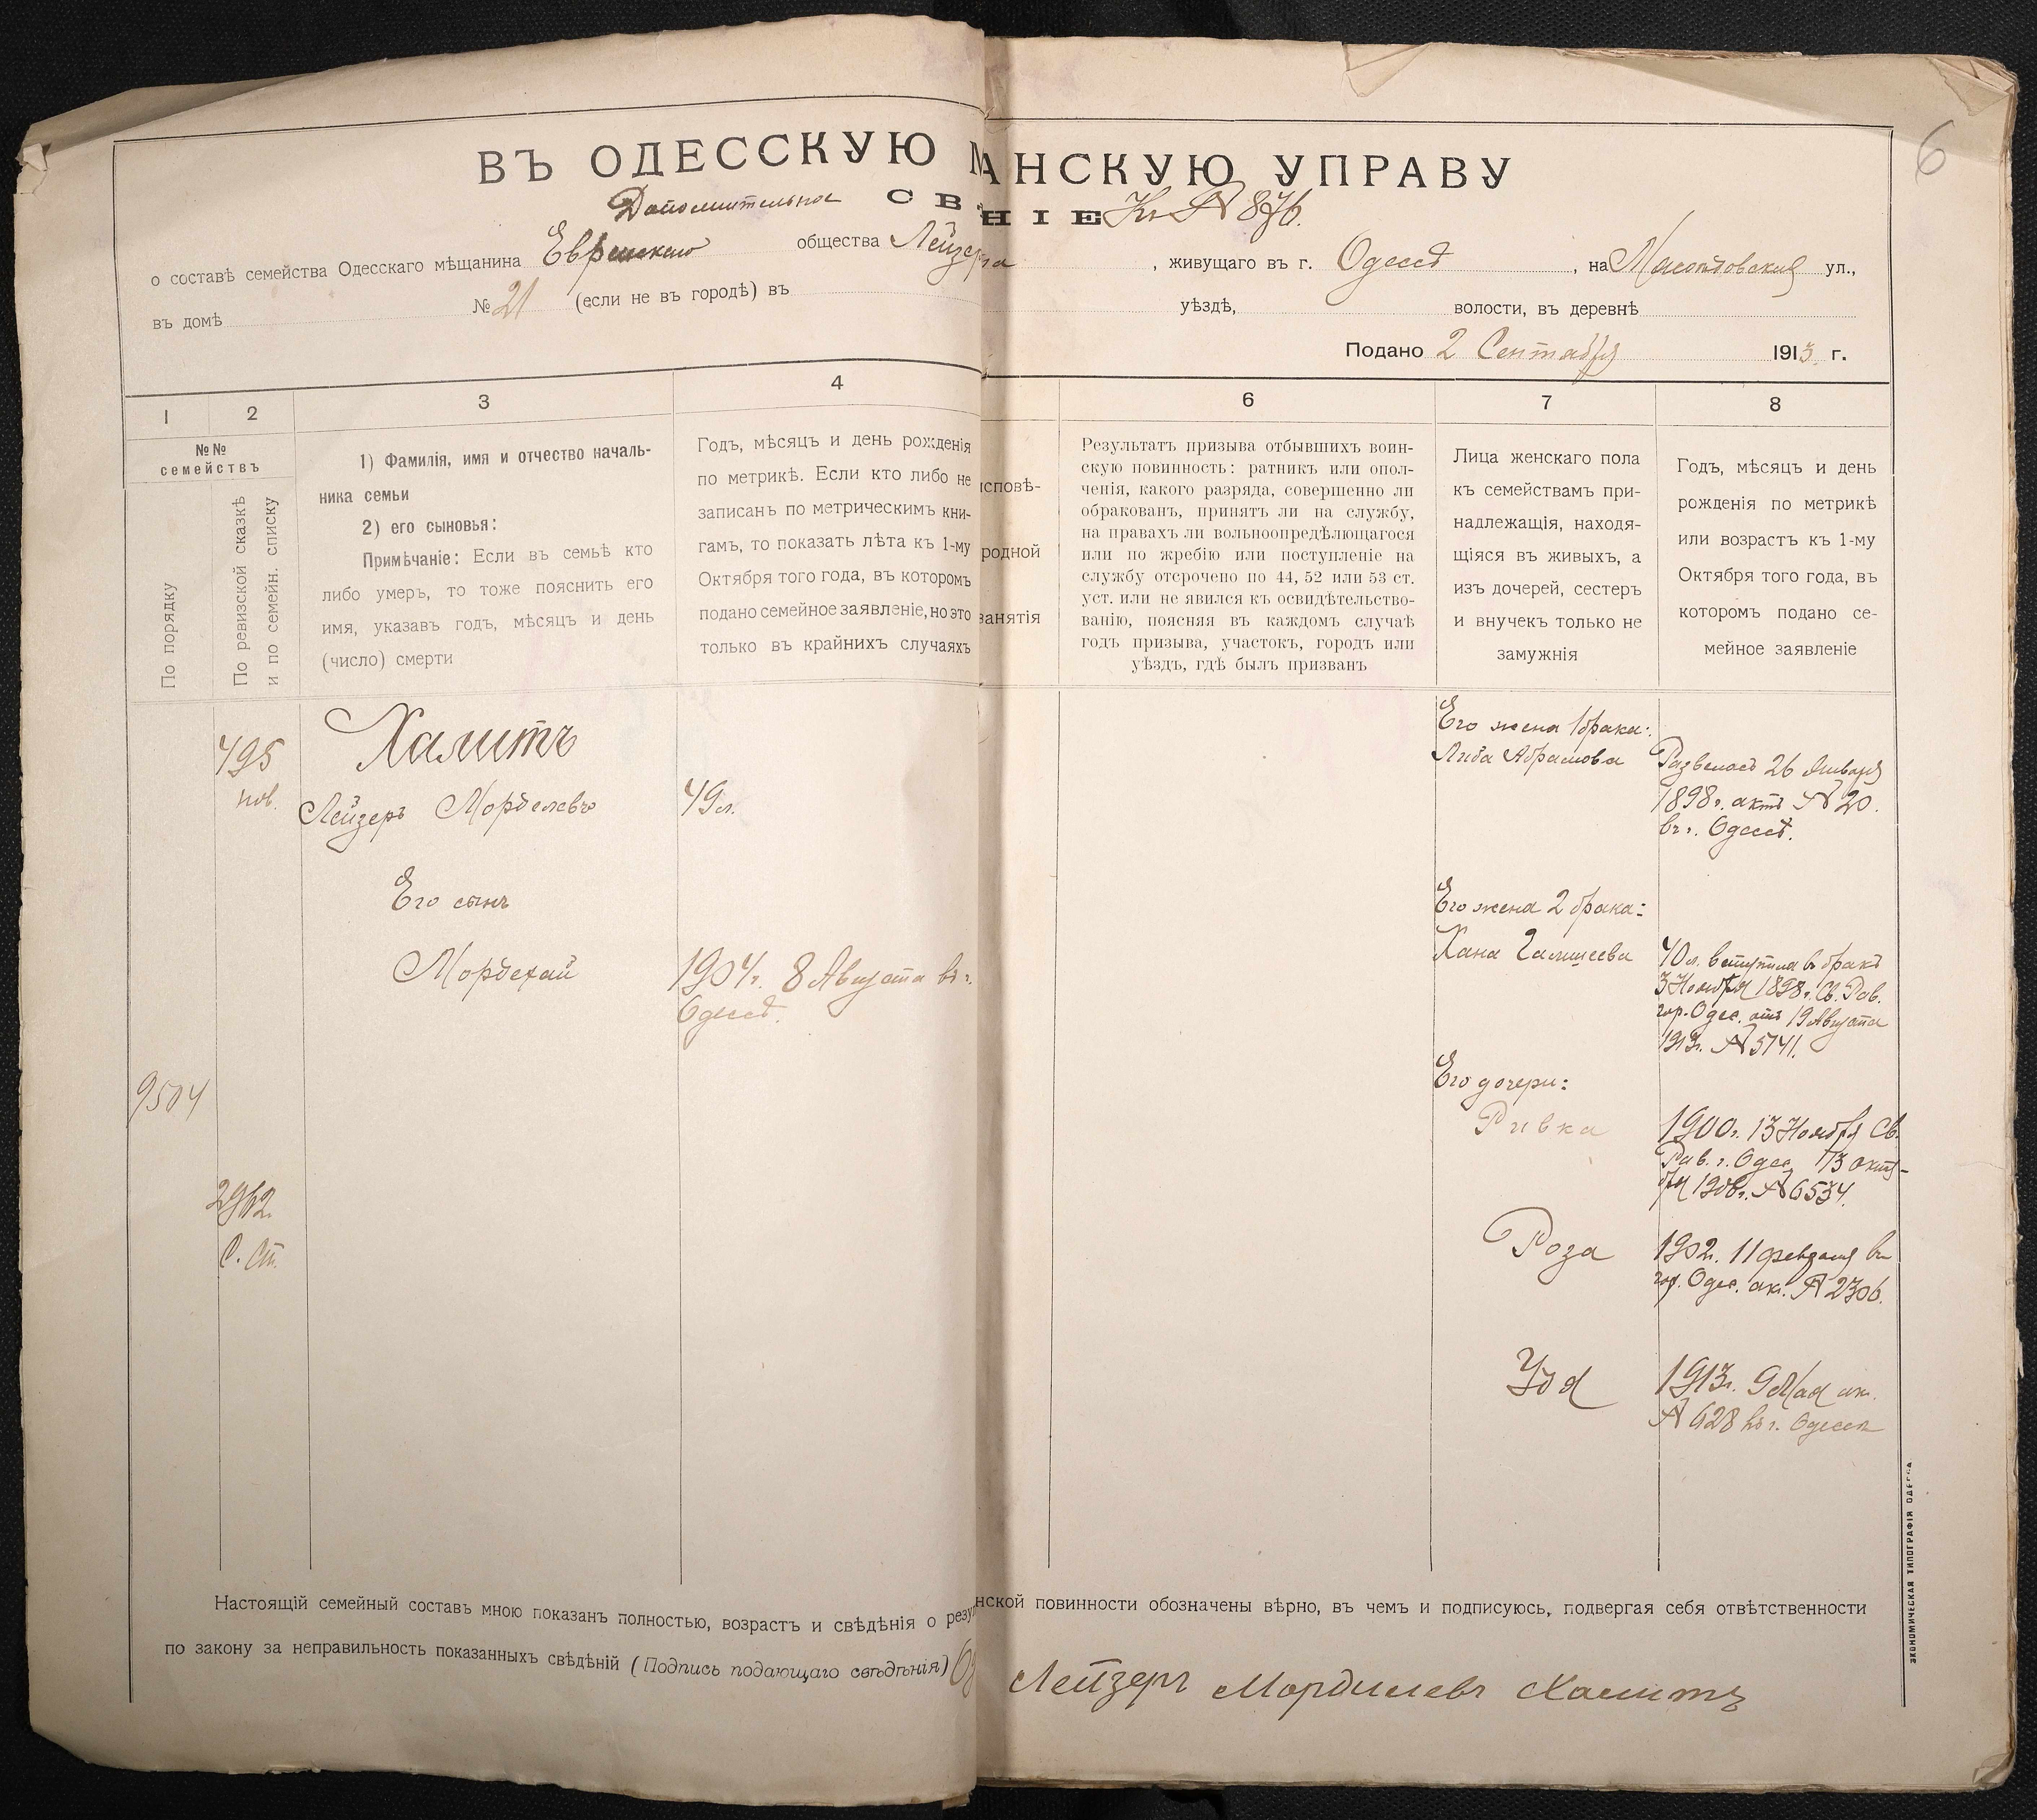 6
ВЪ ОДЕССКУЮ М АНСКУЮ УПРАВУ
Дополнительное СВ НІЕ Къ № 876.
о составѣ семейства Одесскаго мѣщанина Еврейскаго общества Лейзера , живущаго въ г. Одессѣ , на ул.,
въ домѣ № 21 (если не въ городѣ) въ уѣздѣ, волости, въ деревнѣ
Подано 2 Сентября 1913 г.
1 2 3 4 6 7 8
№№
семействъ
По порядку
По ревизской сказкѣ
и по семейн. списку
1) Фамилія, имя и отчество началь-
ника семьи
2) его сыновья:
Примѣчаніе: Если въ семьѣ кто
либо умеръ, то тоже пояснить его
имя, указавъ годъ, мѣсяцъ и день
(число) смерти
Годъ, мѣсяцъ и день рожденія
по метрикѣ. Если кто либо не
записанъ по метрическимъ кни-
гамъ, то показать лѣта къ 1-му
Октября того года, въ которомъ
подано семейное заявленіе, но это
только въ крайнихъ случаяхъ
исповѣ-
родной
занятія
Результатъ призыва отбывшихъ воин-
скую повинность: ратникъ или опол-
ченія, какого разряда, совершенно ли
обракованъ, принятъ ли на службу,
на правахъ ли вольноопредѣляющагося
или по жребію или поступленіе на
службу отсрочено по 44, 52 или 53 ст.
уст. или не явился къ освидѣтельство-
ванію, поясняя въ каждомъ случаѣ
годъ призыва, участокъ, городъ или
уѣздъ, гдѣ былъ призванъ
Лица женскаго пола
къ семействамъ при-
надлежащія, находя-
щіяся въ живыхъ, а
изъ дочерей, сестеръ
и внучекъ только не
замужнія
Годъ, мѣсяцъ и день
рожденія по метрикѣ
или возрастъ къ 1-му
Октября того года, въ
которомъ подано се-
мейное заявленіе
495
нов.
Халитъ
Лейзеръ Морделевъ
49 л.
Его сынъ
Мордехай
1904 г. 8 Августа въ г.
Одессѣ.
9504
2962
С. Ст.
Его жена 1 брака:
Либа Абрамова
Развелась 26 Января
1898 г. актъ № 20.
въ г. Одессѣ.
Его жена 2 брака:
Хана
40 л. вступила въ бракъ
3 Ноября 1898 г. Св. Рав.
гор. Одес. отъ 19 Августа
1913 г. № 5741.
Его дочери:
Ривка
1900 г. 13 Ноября Св.
Рав. г. Одес. 13 октя-
бря 1908 г. № 6534.
Роза
1902 г. 11 февраля въ
гор. Одес. ак. № 2306.
Удя
1913 г. 9 Мая ак.
№ 628 въ г. Одессѣ
Настоящій семейный составъ мною показанъ полностью, возрастъ и свѣдѣнія о резул нской повинности обозначены вѣрно, въ чемъ и подписуюсь, подвергая себя отвѣтственности
по закону за неправильность показанныхъ свѣдѣній (Подпись подающаго свѣдѣнія)
Лейзеръ Морделевъ Халитъ
ЭКОНОМИЧЕСКАЯ ТИПОГРАФІЯ ОДЕССА